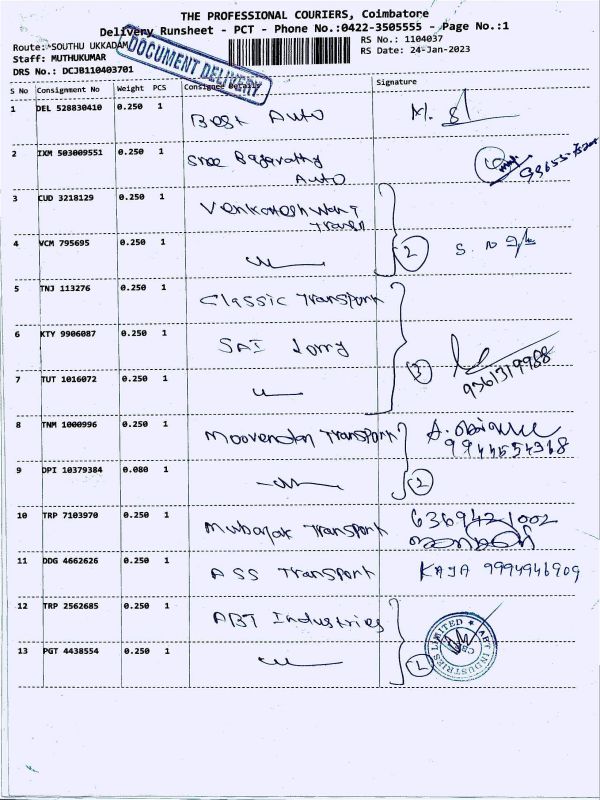 THE PROFESSIONAL COURIERS, Coimbatore
Delivery Runsheet - PCT - Phone No.:0422-3505555 - Page No.:1
Route: SOUTHU UKKADAM
RS No.: 1104037
Staff: MUTHUKUMAR
RS Date: 24-Jan-2023
DRS No.: DCJB110403701
DOCUMENT DELIVERY
S No Consignment No Weight PCS Consignee Details Signature
1 DEL 528830410 0.250 1 Best Auto M.
2 IXM 503009551 0.250 1 Sree Bagavathy Auto
3 CUD 3218129 0.250 1 Venkateshwara Trans
4 VCM 795695 0.250 1 2
5 TNJ 113276 0.250 1 Classic Transport
6 KTY 9906087 0.250 1 SAI Lorry
7 TUT 1016072 0.250 1 3 9361319988
8 TNM 1000996 0.250 1 Moovendan Transport 9944554368
9 DPI 10379384 0.080 1 2
10 TRP 7103970 0.250 1 Mubarak Transport 6369421002
11 DDG 4662626 0.250 1 ASS Transport KAJA 9994946909
12 TRP 2562685 0.250 1 ABT Industries
13 PGT 4438554 0.250 1
ABT INDUSTRIES LIMITED
CBE